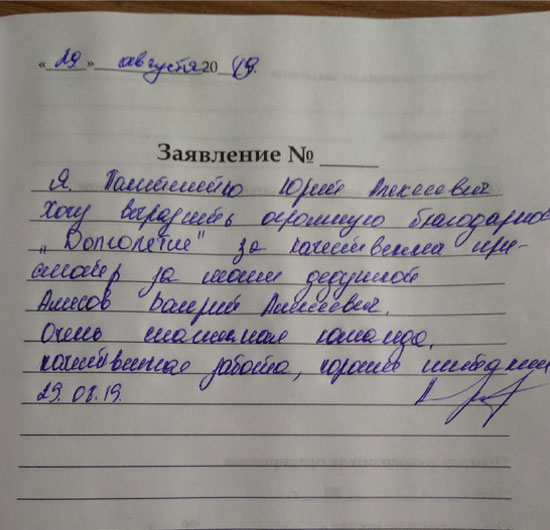 «29» августа 2019.
Заявление № ____
Я Юрий Алексеевич
Хочу выразить огромную благодарнос
„Долголетие" за качественна при-
смотр за моим дедушкой
Алисов Валерий Алексеевич.
Очень команда,
качественная забота, хорошие
29.08.19.